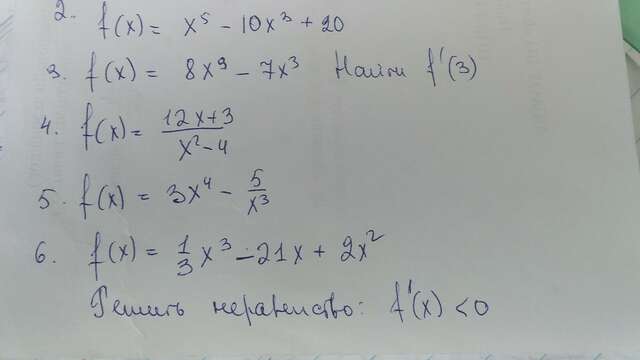 2. f(x) = x⁵ - 10x³ + 20
3. f(x) = 8x⁹ - 7x³ Найти f'(3)
4. f(x) = (12x+3)/(x²-4)
5. f(x) = 3x⁴ - 5/x³
6. f(x) = 1/3 x³ - 21x + 2x²
Решить неравенство: f'(x) < 0